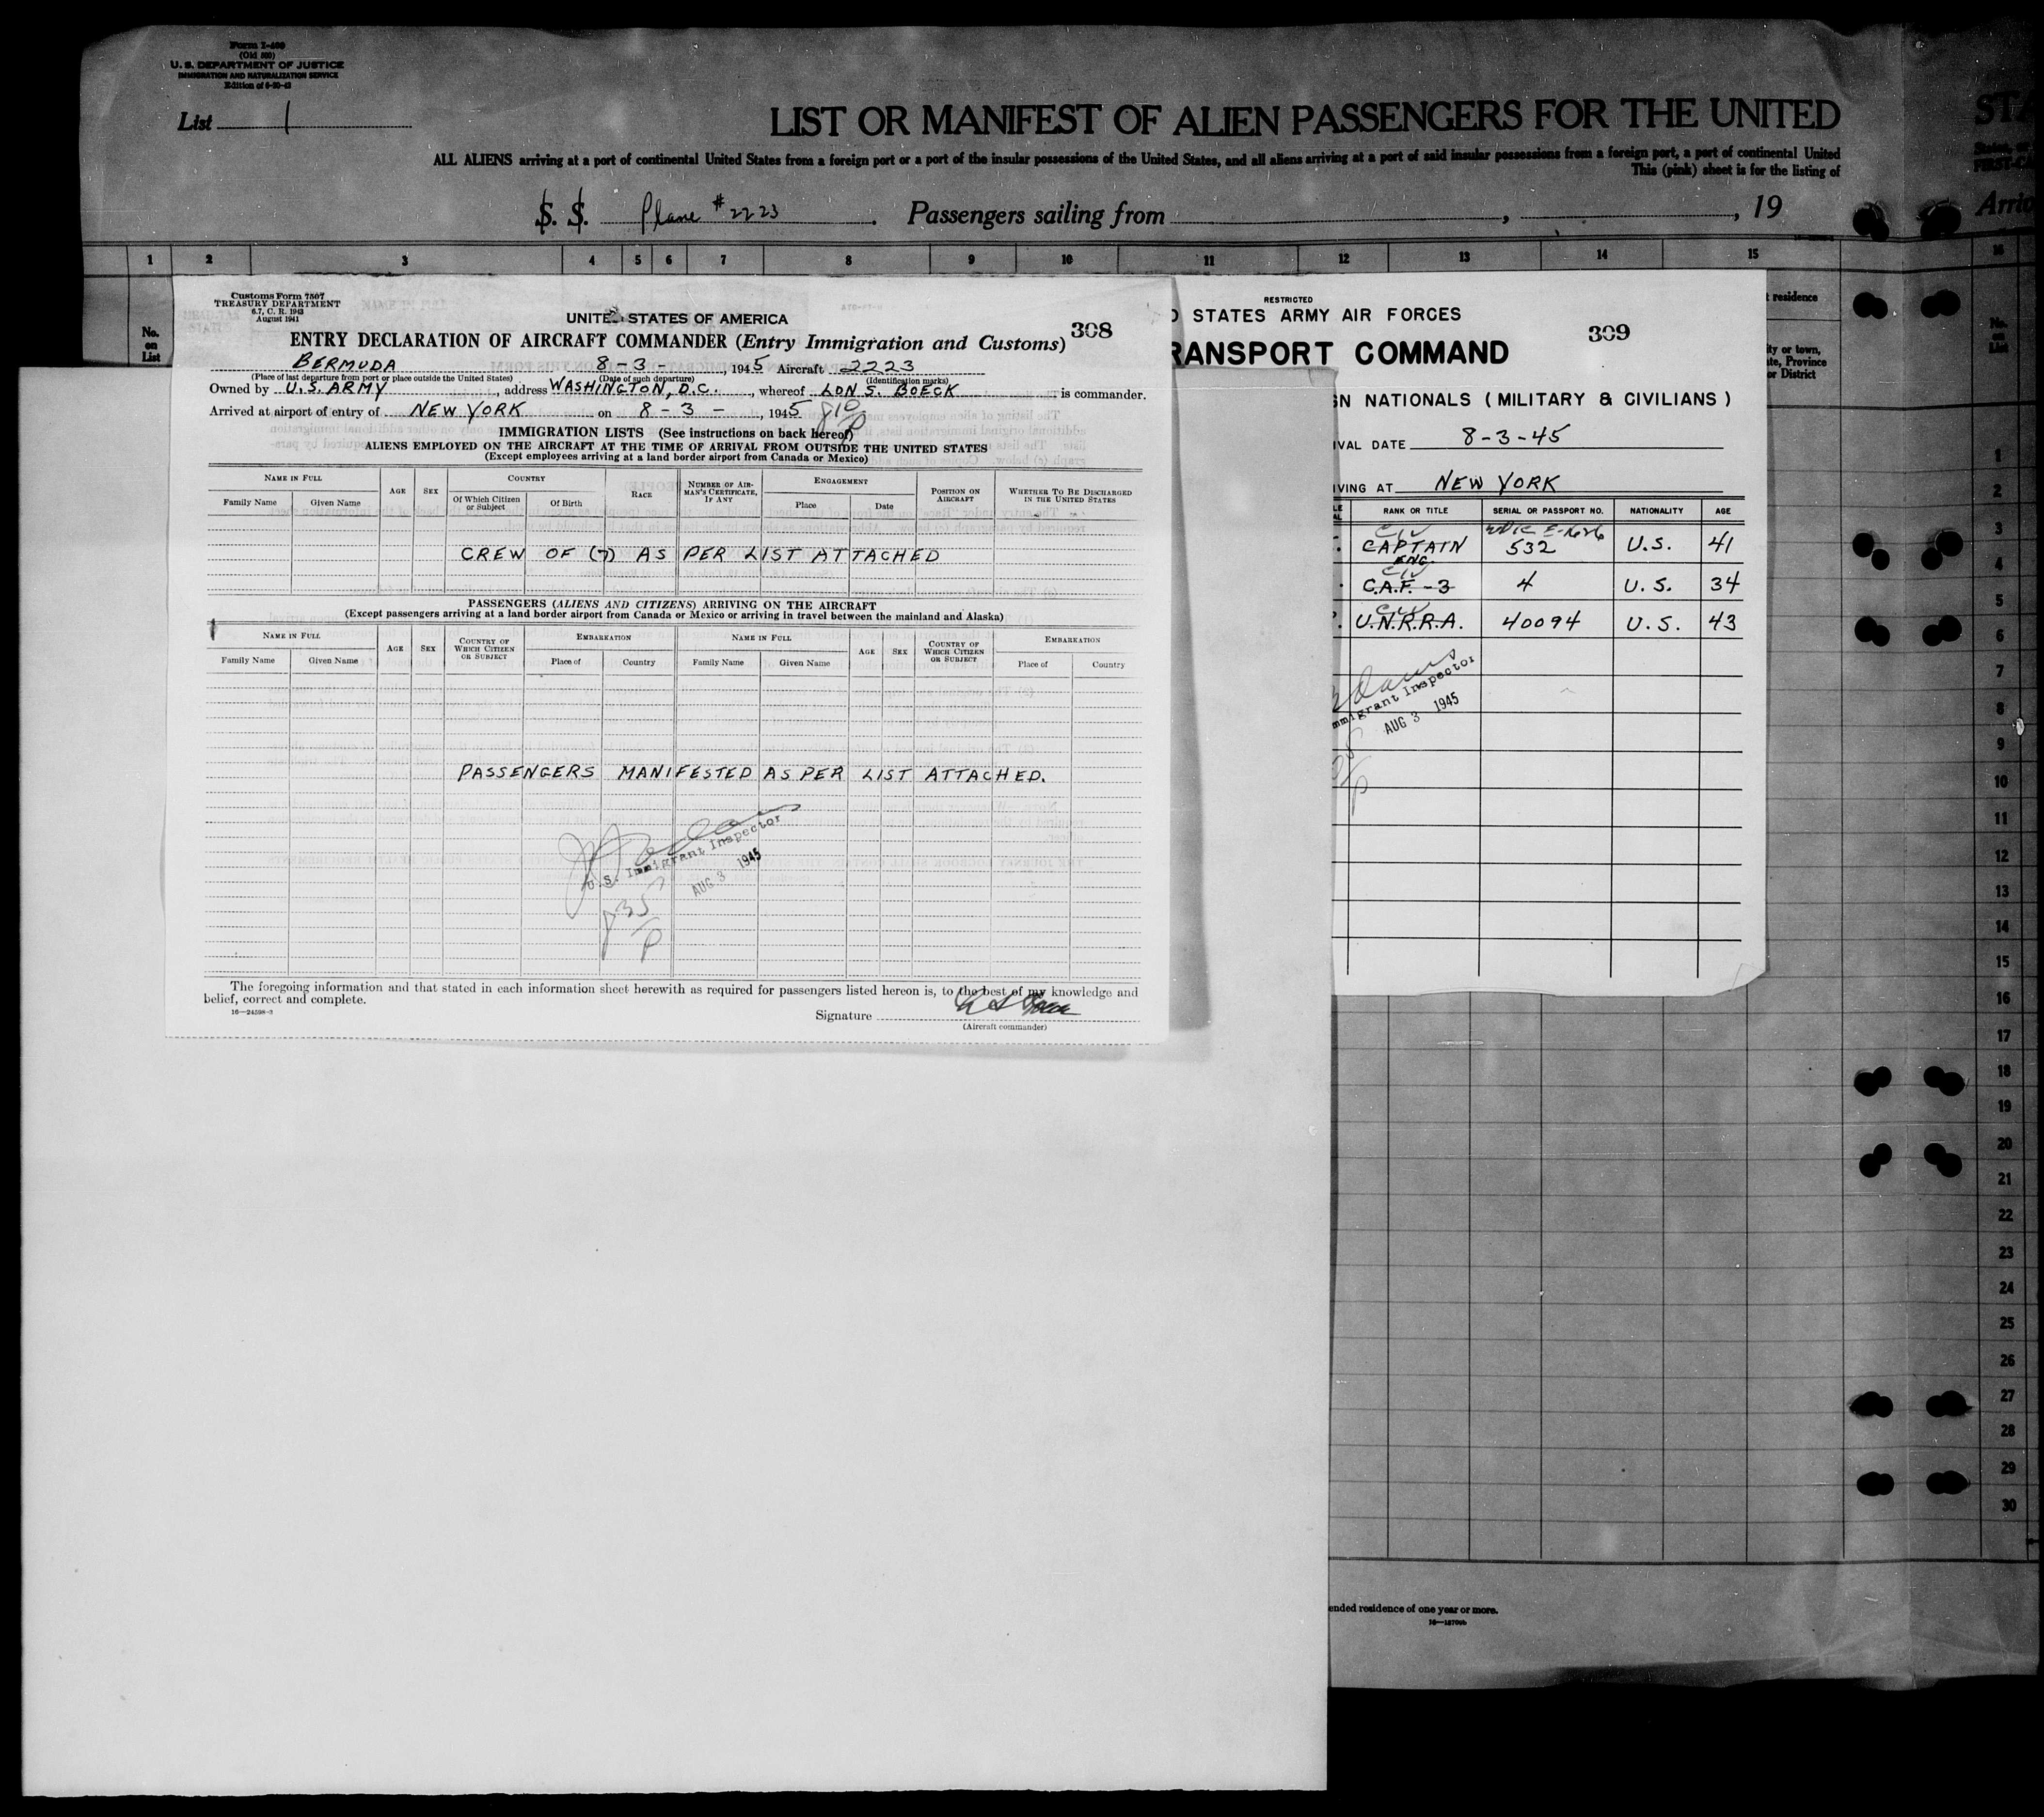 Form I-400
(Old 500)
U. S. DEPARTMENT OF JUSTICE
IMMIGRATION AND NATURALIZATION SERVICE
List 1
LIST OR MANIFEST OF ALIEN PASSENGERS FOR THE UNITED
ALL ALIENS arriving at a port of continental United States from a foreign port or a port of the insular possessions of the United States, and all aliens arriving at a port of said insular possessions from a foreign port, a port of continental United
This (pink) sheet is for the listing of
S. S. Plane #2223. Passengers sailing from , , 19
1 2 3 4 5 6 7 8 9 10 11 12 13 14 15 16
No. on List
Customs Form 7507
TREASURY DEPARTMENT
6.7, C. R. 1943
August 1941
UNITED STATES OF AMERICA
308
ENTRY DECLARATION OF AIRCRAFT COMMANDER (Entry Immigration and Customs)
BERMUDA 8-3-, 1945 Aircraft 2223
(Place of last departure from port or place outside the United States) (Date of such departure) (Identification marks)
Owned by U.S. ARMY, address WASHINGTON, D.C., whereof LON S. BOECK is commander.
Arrived at airport of entry of NEW YORK on 8-3-, 1945 810/P
IMMIGRATION LISTS (See instructions on back hereof)
ALIENS EMPLOYED ON THE AIRCRAFT AT THE TIME OF ARRIVAL FROM OUTSIDE THE UNITED STATES
(Except employees arriving at a land border airport from Canada or Mexico)
NAME IN FULL AGE SEX COUNTRY RACE NUMBER OF AIRMAN'S CERTIFICATE, IF ANY ENGAGEMENT POSITION ON AIRCRAFT WHETHER TO BE DISCHARGED IN THE UNITED STATES
Family Name Given Name Of Which Citizen or Subject Of Birth Place Date
CREW OF (7) AS PER LIST ATTACHED
PASSENGERS (ALIENS AND CITIZENS) ARRIVING ON THE AIRCRAFT
(Except passengers arriving at a land border airport from Canada or Mexico or arriving in travel between the mainland and Alaska)
NAME IN FULL AGE SEX COUNTRY OF WHICH CITIZEN OR SUBJECT EMBARKATION NAME IN FULL AGE SEX COUNTRY OF WHICH CITIZEN OR SUBJECT EMBARKATION
Family Name Given Name Place of Country Family Name Given Name Place of Country
PASSENGERS MANIFESTED AS PER LIST ATTACHED.
U.S. Immigrant Inspector
AUG 3 1945
835/P
The foregoing information and that stated in each information sheet herewith as required for passengers listed hereon is, to the best of my knowledge and
belief, correct and complete.
16—24598-3
Signature
(Aircraft commander)
RESTRICTED
D STATES ARMY AIR FORCES
309
RANSPORT COMMAND
GN NATIONALS (MILITARY & CIVILIANS)
IVAL DATE 8-3-45
IVING AT NEW YORK
RANK OR TITLE SERIAL OR PASSPORT NO. NATIONALITY AGE
CIV
CAPTAIN 532 U.S. 41
ENG.
CIV
C.A.F.-3 4 U.S. 34
CIV
U.N.R.R.A. 40094 U.S. 43
mmigrant Inspector
AUG 3 1945
t residence
ity or town,
te, Province
or District
STA
FIRST-CA
Arriv
No. on List
1
2
3
4
5
6
7
8
9
10
11
12
13
14
15
16
17
18
19
20
21
22
23
24
25
26
27
28
29
30
ended residence of one year or more.